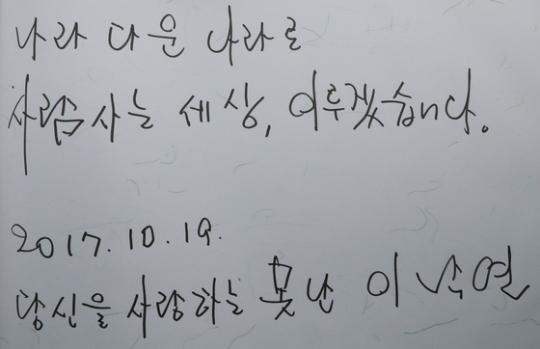 나라 다운 나라로
사람 사는 세상, 이루겠습니다.
2017. 10. 19.
당신을 사랑하는 못난 이낙연